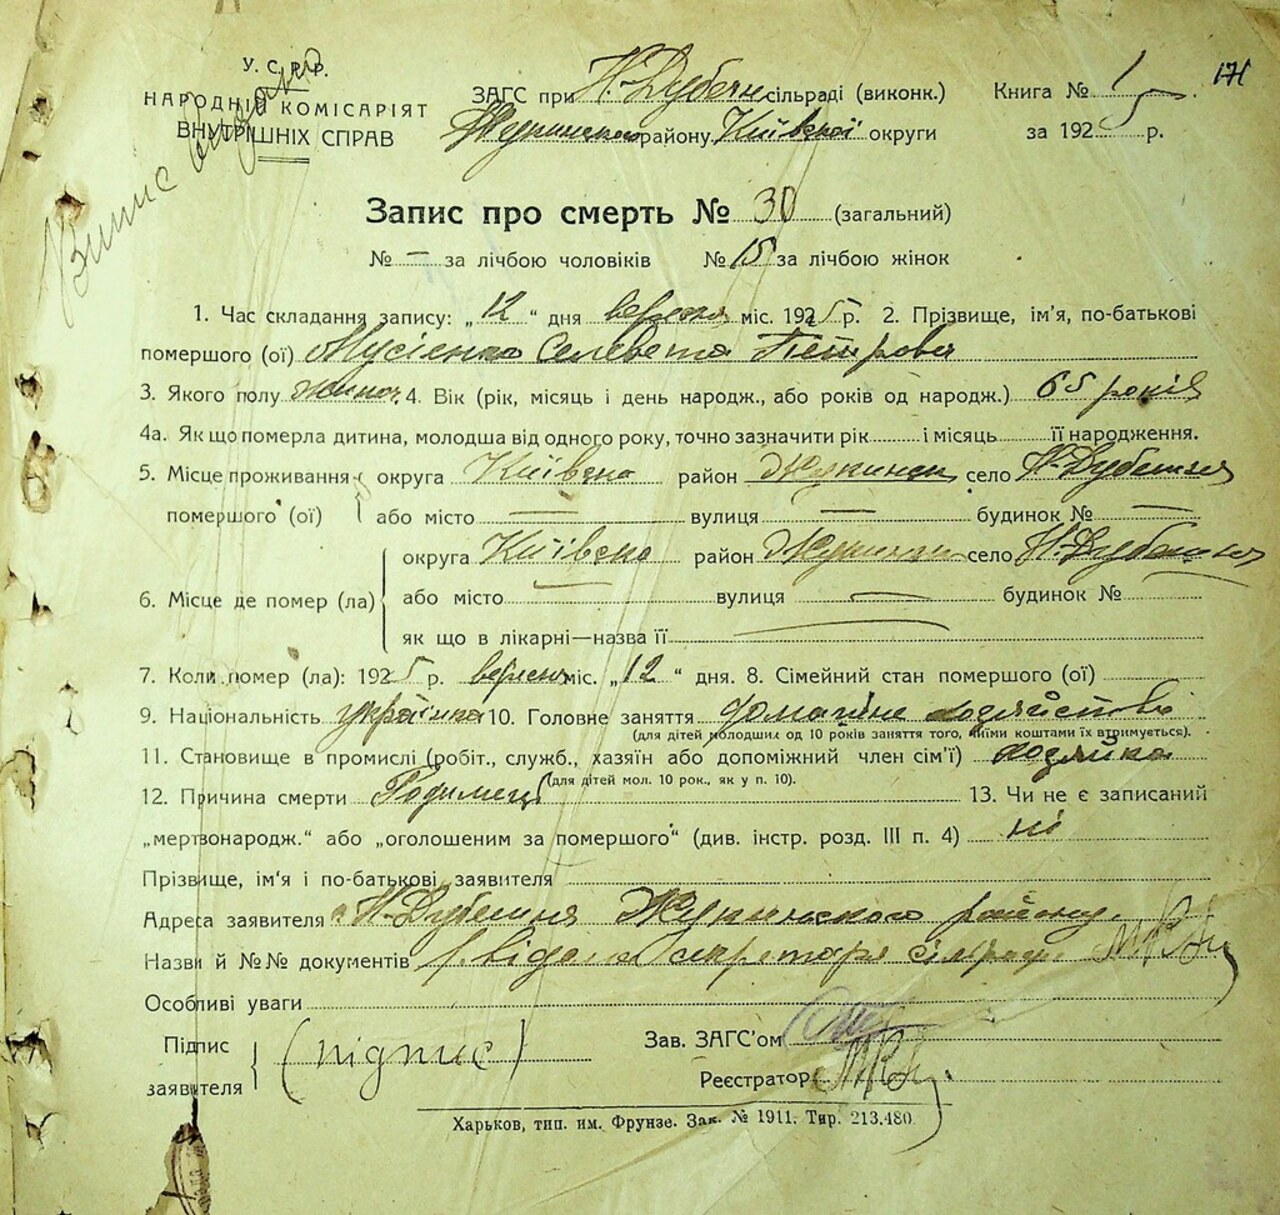 У. С. Р. Р.
НАРОДНІЙ КОМІСАРІЯТ
ВНУТРІШНІХ СПРАВ
Випис видано
ЗАГС при Н-Дубечн сільраді (виконк.)
району Київської округи
Книга № 1
за 1925 р.
171
Запис про смерть № 30 (загальний)
№ — за лічбою чоловіків № 15 за лічбою жінок
1. Час складання запису: „12“ дня вересня міс. 1925 р. 2. Прізвище, ім'я, по-батькові
помершого (ої) Мусієнко Селевета Петровн
3. Якого полу жіноч. 4. Вік (рік, місяць і день народж., або років од народж.) 65 років
4а. Як що померла дитина, молодша від одного року, точно зазначити рік і місяць її народження.
5. Місце проживання округа Київська район Жукинськ село Н-Дубешня
помершого (ої) або місто — вулиця — будинок № —
округа Київська район село Н-Дубешня
6. Місце де помер (ла) або місто — вулиця — будинок № —
як що в лікарні—назва її —
7. Коли помер (ла): 1925 р. вересня міс. „12“ дня. 8. Сімейний стан помершого (ої)
9. Національність українка 10. Головне заняття домашнє хозяйство
(для дітей молодших од 10 років заняття того, чиїми коштами їх втримується).
11. Становище в промислі (робіт., служб., хазяїн або допоміжний член сім'ї) хозяйка
(для дітей мол. 10 рок., як у п. 10).
12. Причина смерти Родимець 13. Чи не є записаний
„мертвонародж.“ або „оголошеним за помершого“ (див. інстр. розд. III п. 4) ні
Прізвище, ім'я і по-батькові заявителя
Адреса заявителя с. Н-Дубешня Жукинського району
Назви й №№ документів секретаря сільради
Особливі уваги
Підпис
заявителя (підпис)
Зав. ЗАГС'ом
Реєстратор
Харьков, тип. им. Фрунзе. Зак. № 1911. Тир. 213.480.